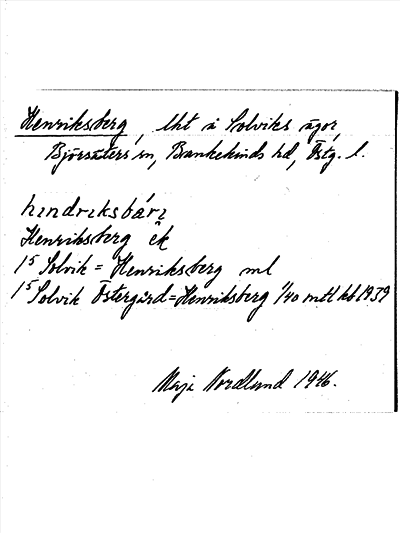 Henriksberg, lht å Solviks ägor,
Björsäters sn, Bankekinds hd, Östg. l.
hɪndrɪksbárɪ
Henriksberg ek
1⁵ Solvik = Henriksberg ml
1⁵ Solvik Östergård = Henriksberg 1/40 mtl kb 1939
Maja Nordlund 1946.